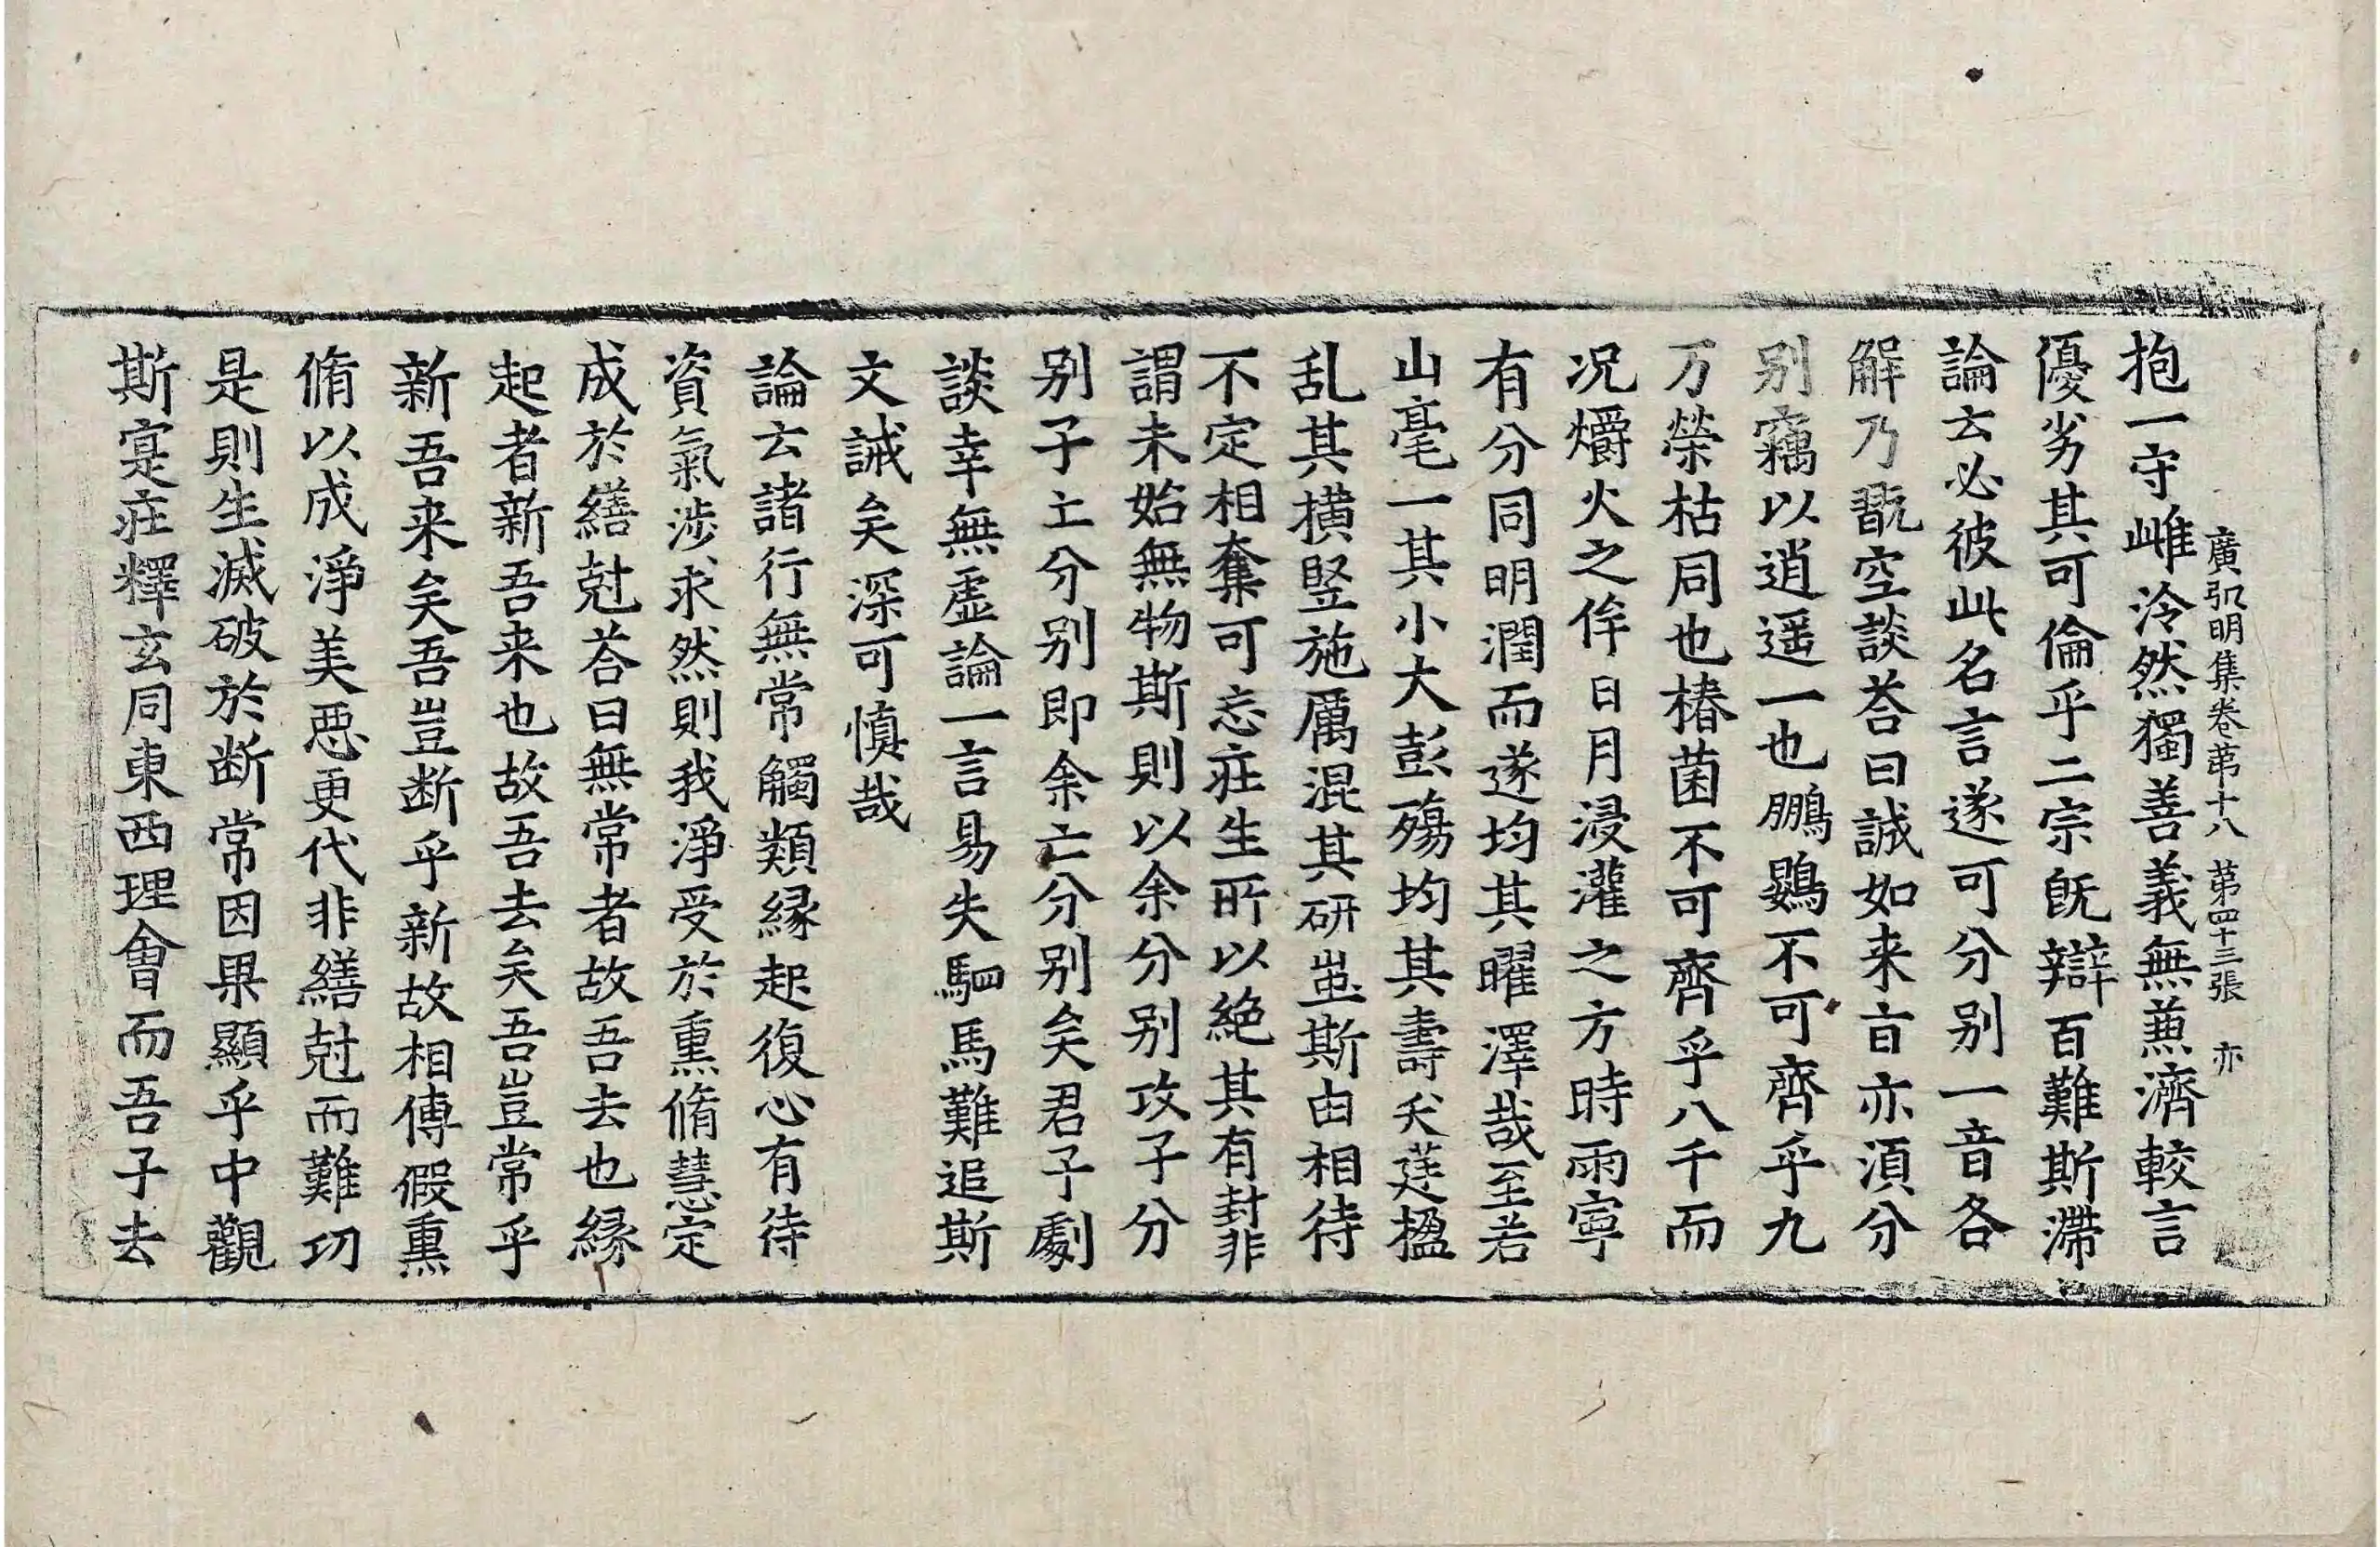 廣弘明集卷第十八 第四十三張 亦
抱一守雌泠然獨善義無兼濟較言
優劣其可倫乎二宗旣辯百難斯滯
論云必彼此名言遂可分别一音各
解乃翫空談荅曰誠如来旨亦湏分
别竊以逍遥一也鵬鷃不可齊乎九
万榮枯同也椿菌不可齊乎八千而
况爝火之侔日月浸灌之方時雨寧
有分同明潤而遂均其曜澤哉至若
山毫一其小大彭殤均其壽夭莛楹
乱其横竪施厲混其研蚩斯由相待
不定相奪可忘莊生所以絶其有封非
謂未始無物斯則以余分别攻子分
别子亡分别即余亡分别矣君子劇
談幸無虚論一言易失駟馬難追斯
文誡矣深可慎哉
論云諸行無常觸類縁起復心有待
資氣涉求然則我淨受於熏脩慧定
成於繕尅荅曰無常者故吾去也縁
起者新吾来也故吾去矣吾豈常乎
新吾来矣吾豈断乎新故相傳假熏
脩以成淨美惡更代非繕尅而難功
是則生滅破於断常因果顯乎中觀
斯寔莊釋玄同東西理會而吾子去